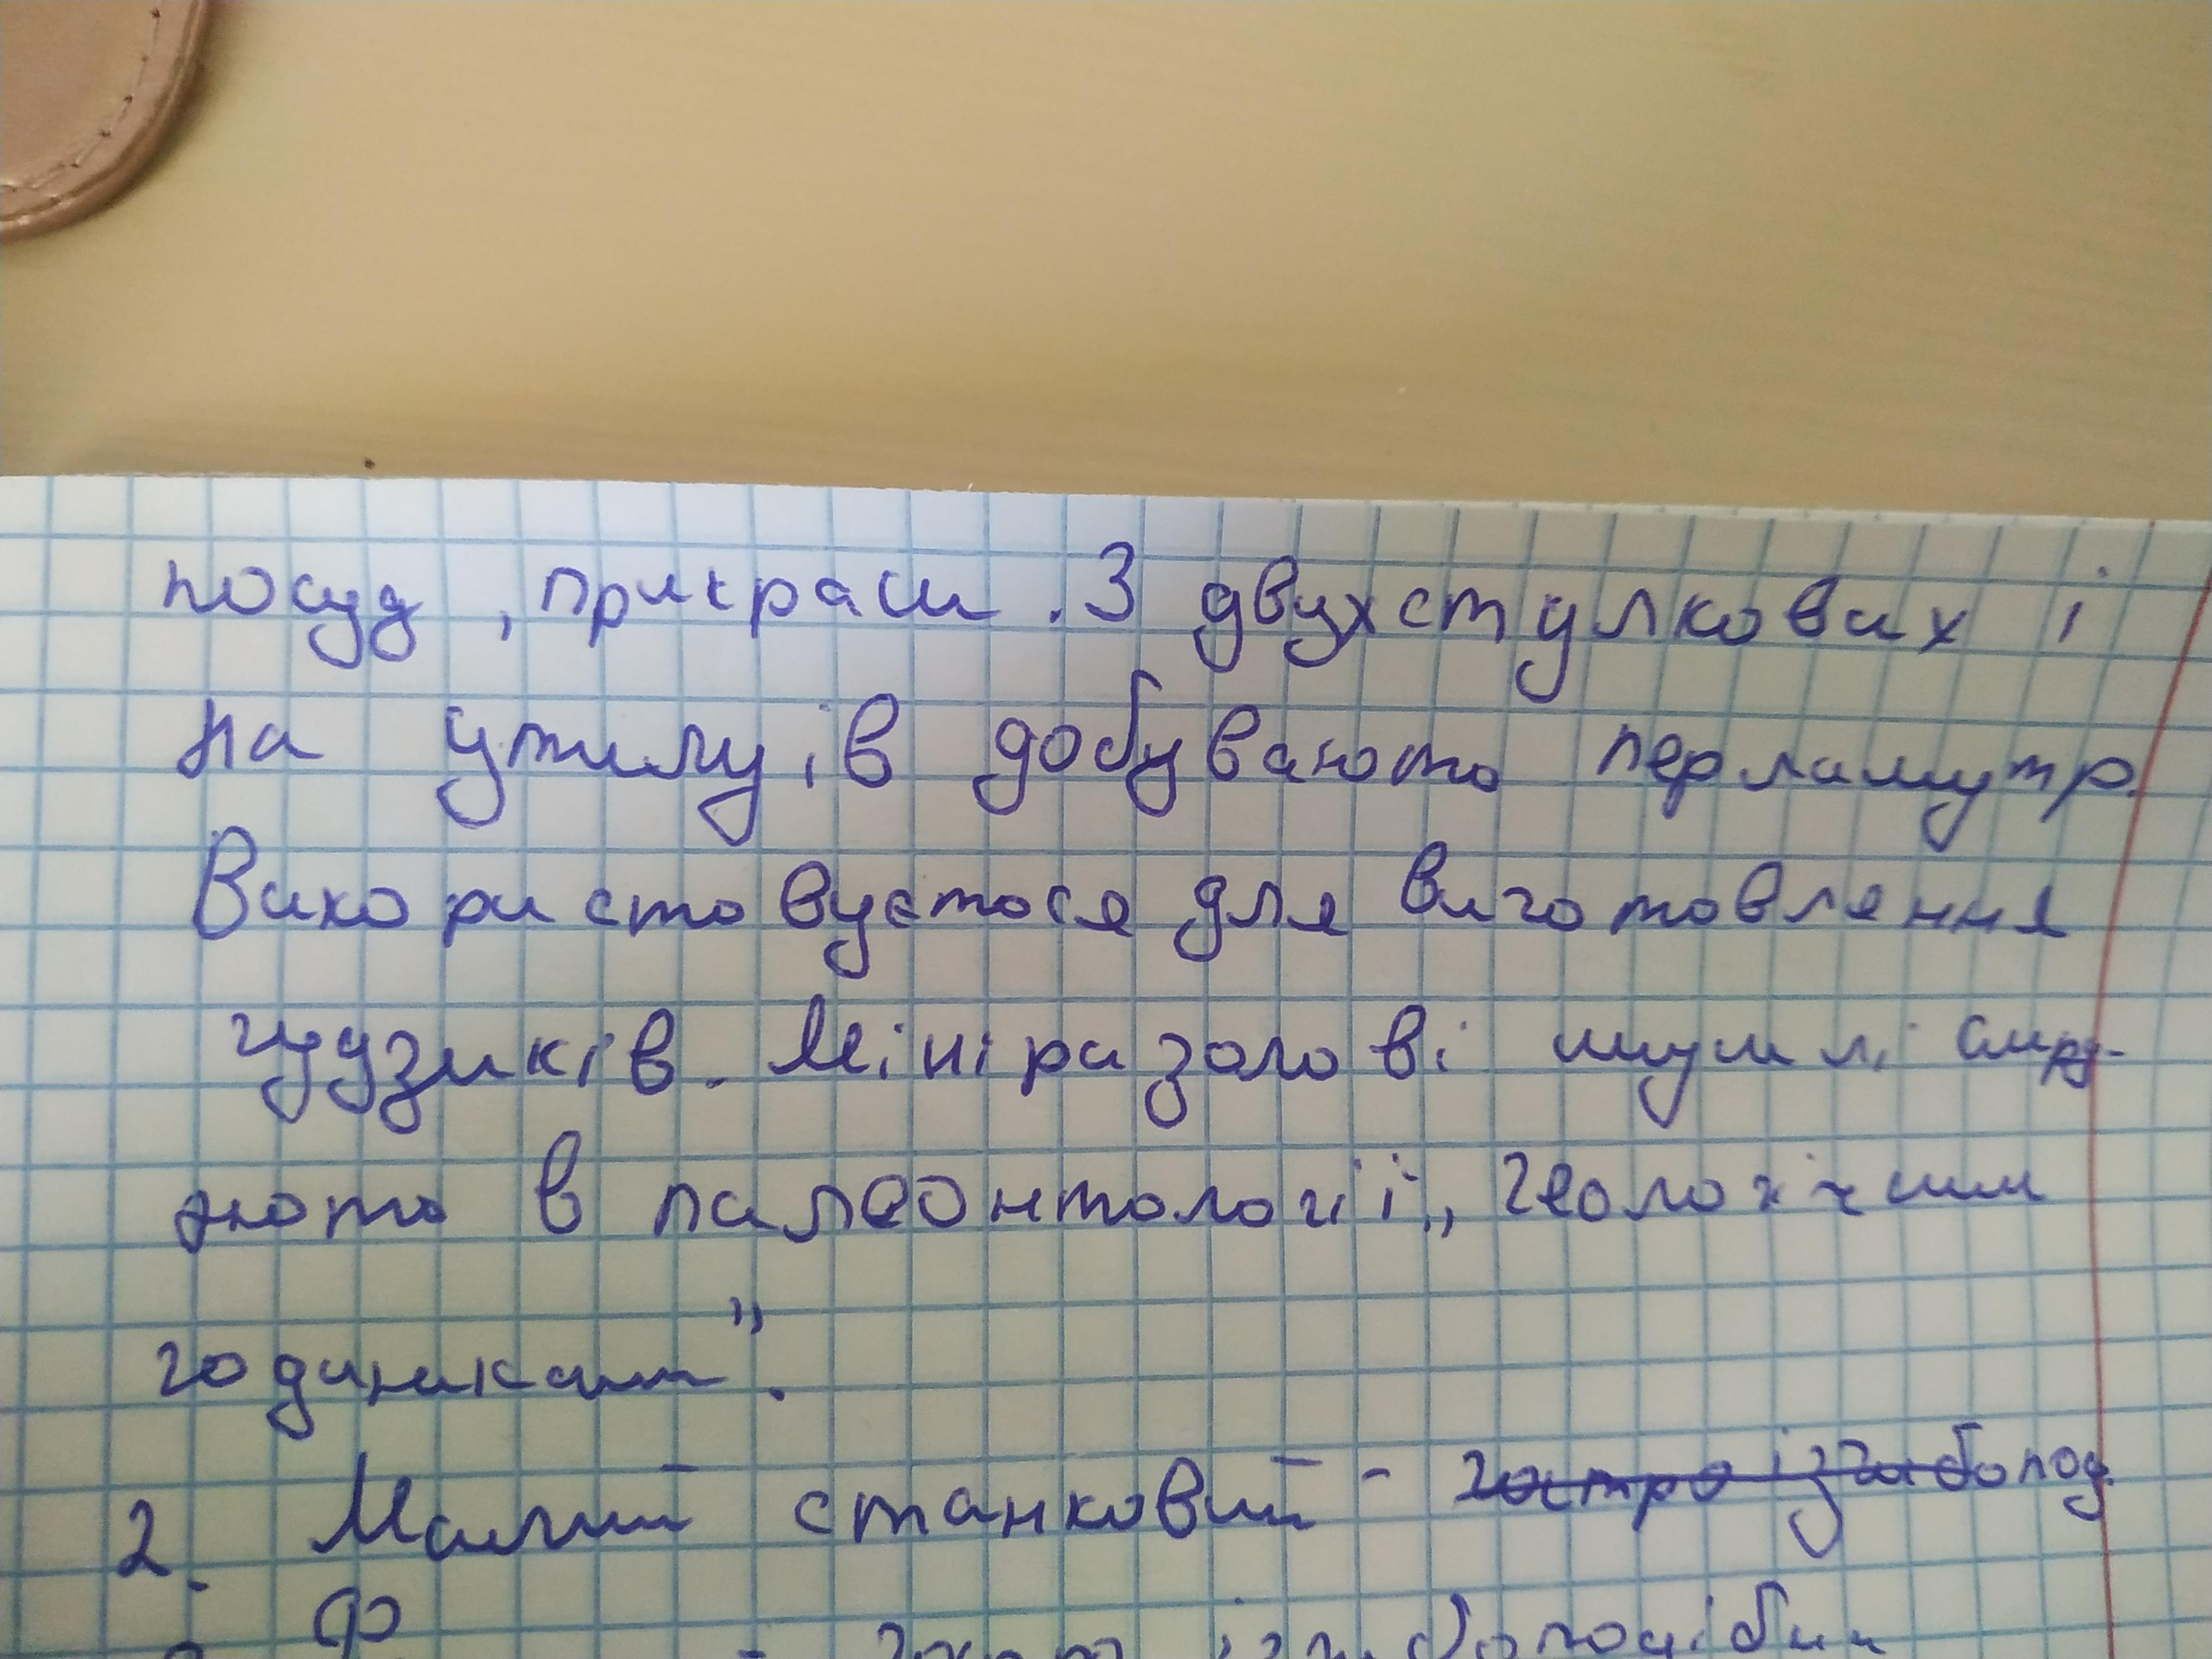 посуд, прикраси. З двухстулкових і
на утилуів добувають перламутр.
Використовується для виготовлення
гудзиків. Мініразолові мушлі слу-
жють в палеонтології „геологічним
годинкам".
2. Малий станковий -